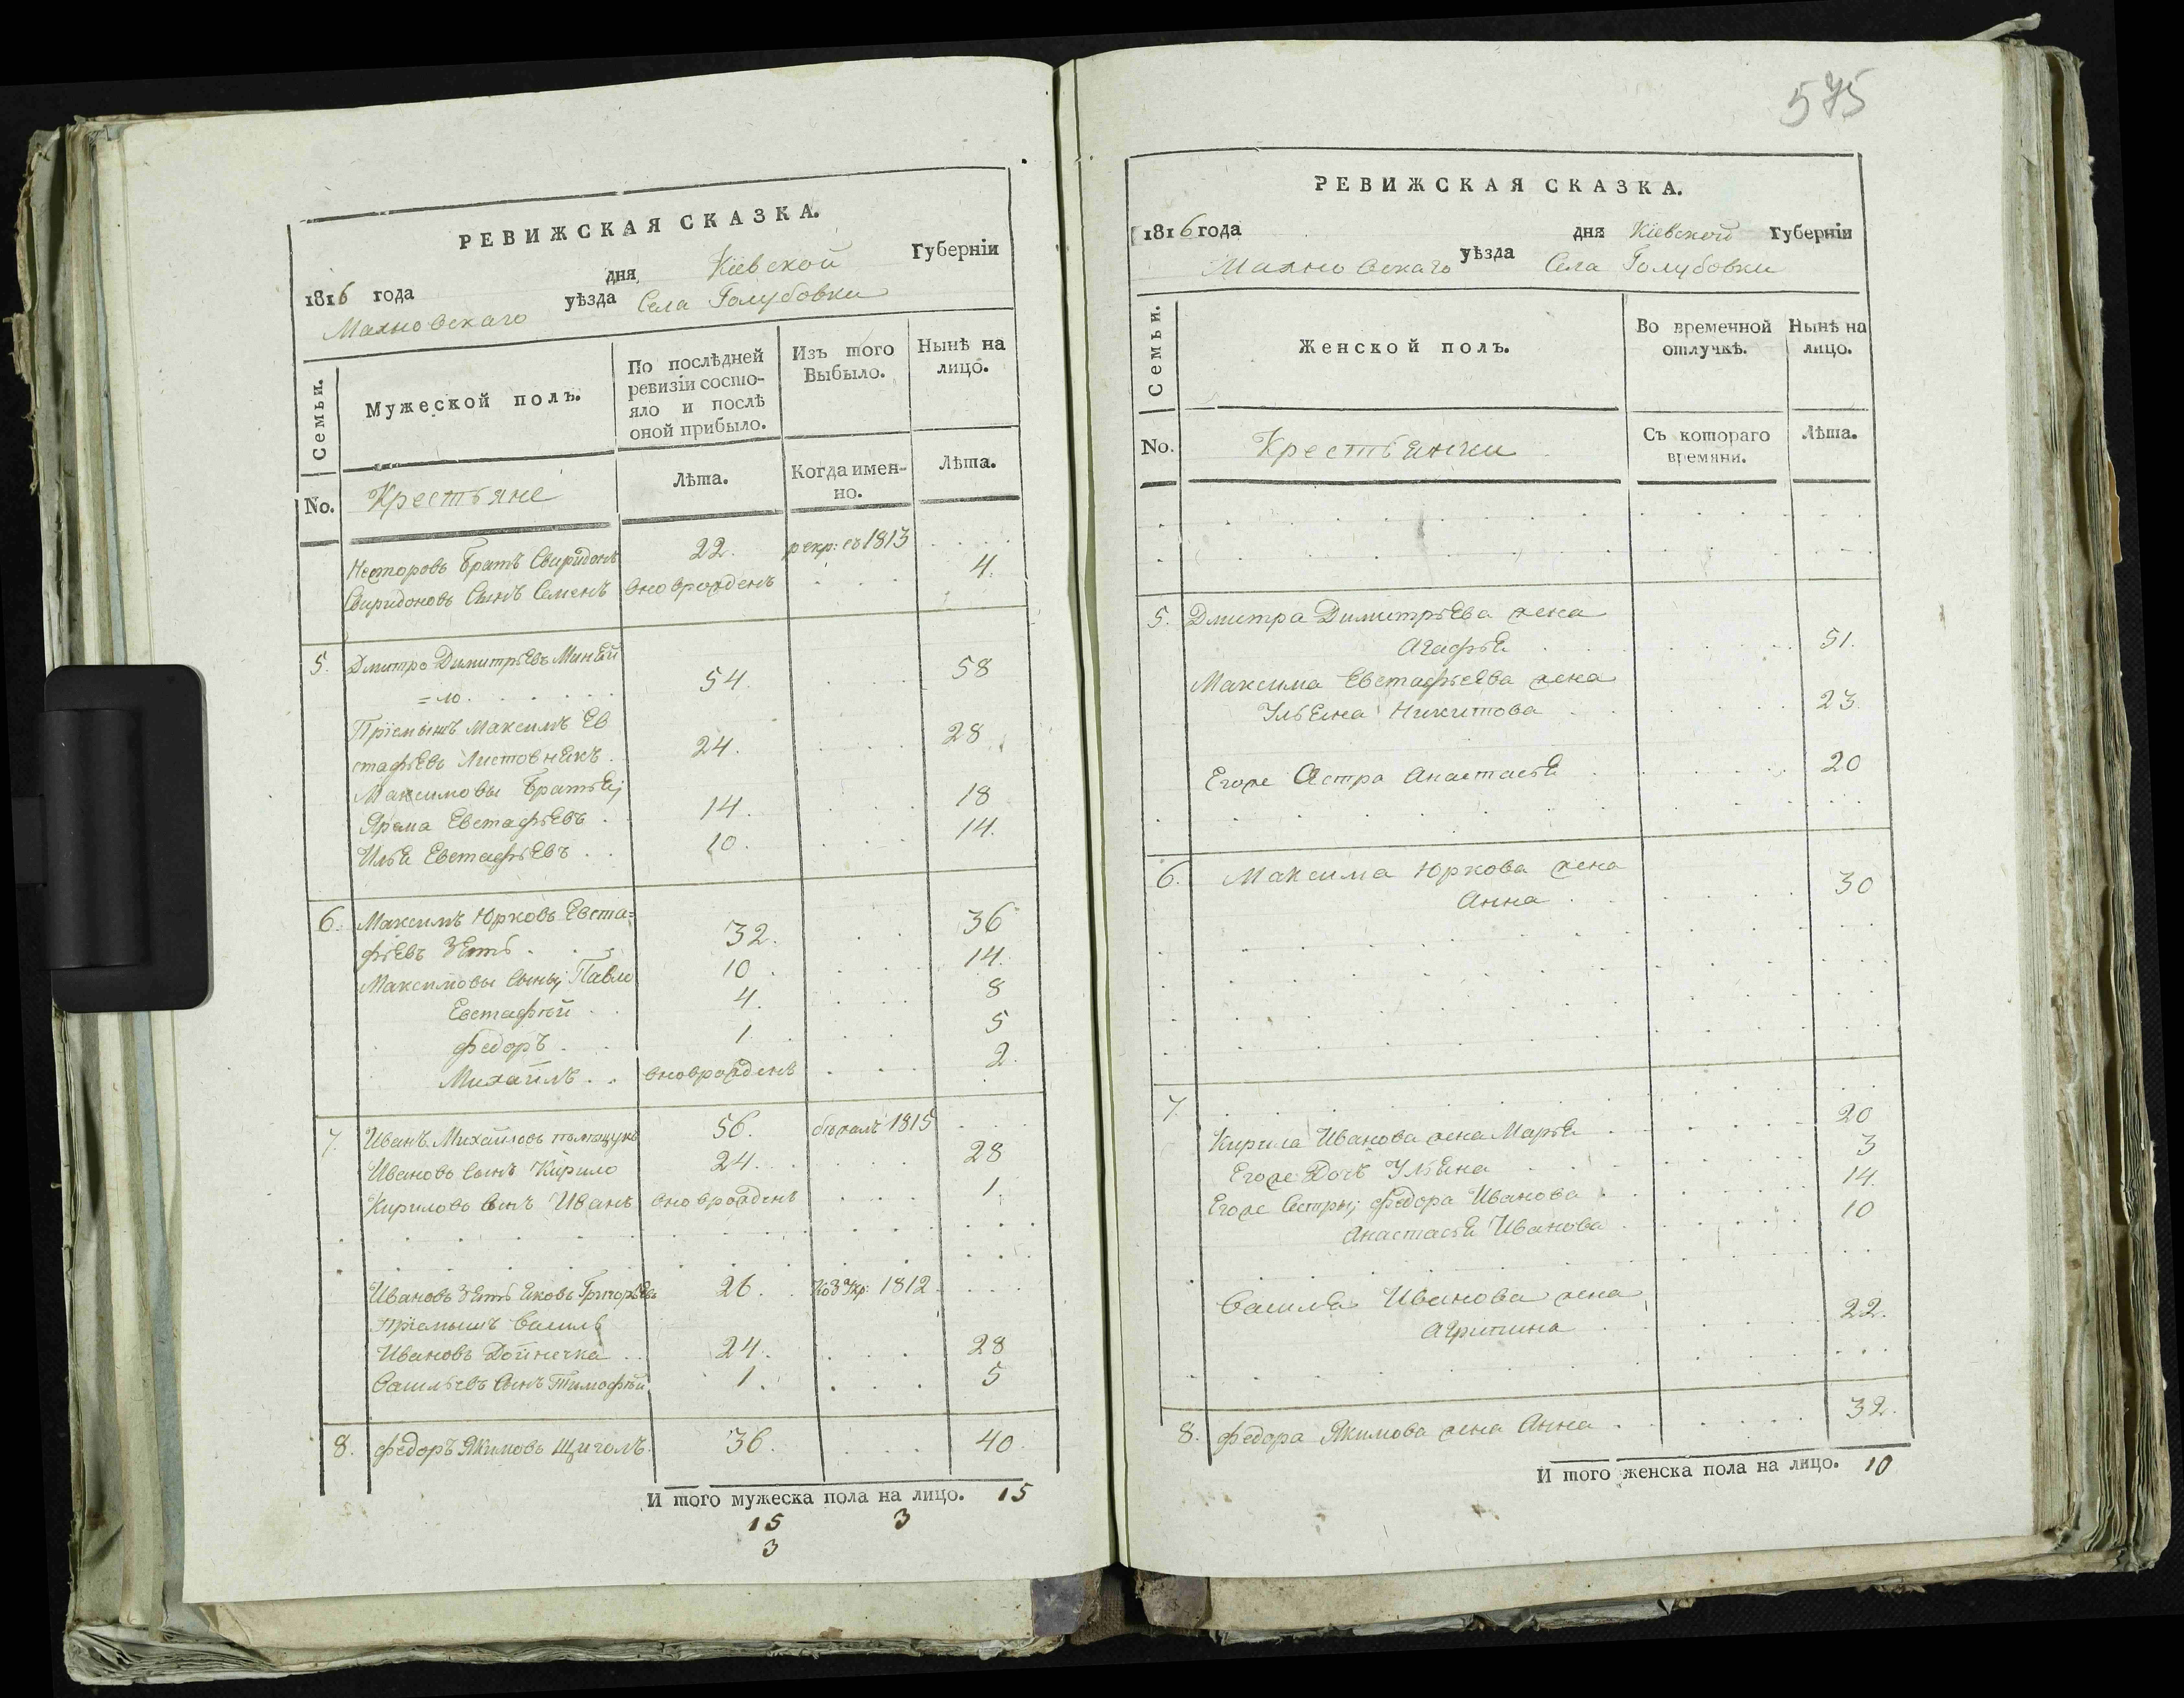 РЕВИЖСКАЯ СКАЗКА.
1816 года дня Кіевской Губерніи
Махновскаго уѣзда Села Голубовки
Семьи.
Мужеской полъ.
По послѣдней ревизіи состо-
яло и послѣ оной прибыло.
Изъ того Выбыло.
Нынѣ на лицо.
No. Крестьяне Лѣта. Когда имен-
но. Лѣта.
Несторовъ Братъ Свиридонъ 22. рекр: въ 1813
Свиридоновъ Сынъ Семенъ вноврожденъ 4.
5. Дмитро Димитрѣевъ Миней
=ло 54. 58
Пріемышъ Максимъ Ев
стафѣевъ 24. 28
Максимовы Братья;
Ярема Евстафѣевъ 14. 18
Илья Евстафѣевъ 10. 14.
6. Максимъ Юрковъ Евста=
фѣевъ Зять 32. 36
Максимовы Сыны; Павло 10. 14.
Евстафѣй 4. 8
Федоръ 1 5
Михайлъ вноврожденъ 2.
7. Иванъ Михайловъ 56. бѣжалъ 1815
Ивановъ Сынъ Кирило 24. 28
Кириловъ Сынъ Иванъ вноврожденъ 1.
Ивановъ Зять Яковъ Григорьевъ 26. 1812.
Пріемышъ Василь
Ивановъ 24. 28
Васильевъ Сынъ Тимофѣй 1. 5
8. Федоръ Якимовъ Щиголъ 36. 40.
И того мужеска пола на лицо. 15
15 3
3
575
РЕВИЖСКАЯ СКАЗКА.
1816 года дня Кіевской Губерніи
Махновскаго уѣзда Села Голубовки
Семьи.
Женской полъ.
Во временной отлучкѣ.
Нынѣ на лицо.
No. Крестьянки Съ котораго
времяни. Лѣта.
5. Дмитра Димитрѣева жена
Агафья 51.
Максима Евстафьева жена
Ульяна Никитова 23.
Егоже Сестра Анастасья 20
6. Максима Юркова жена
Анна 30
7.
Кирила Иванова жена Марья 20
Егоже Дочь Ульяна 3
Егоже Сестры; Федора Иванова 14.
Анастасья Иванова 10
Василя Иванова жена
Агрипина 22.
8. Федора Якимова жена Анна 32.
И того женска пола на лицо. 10